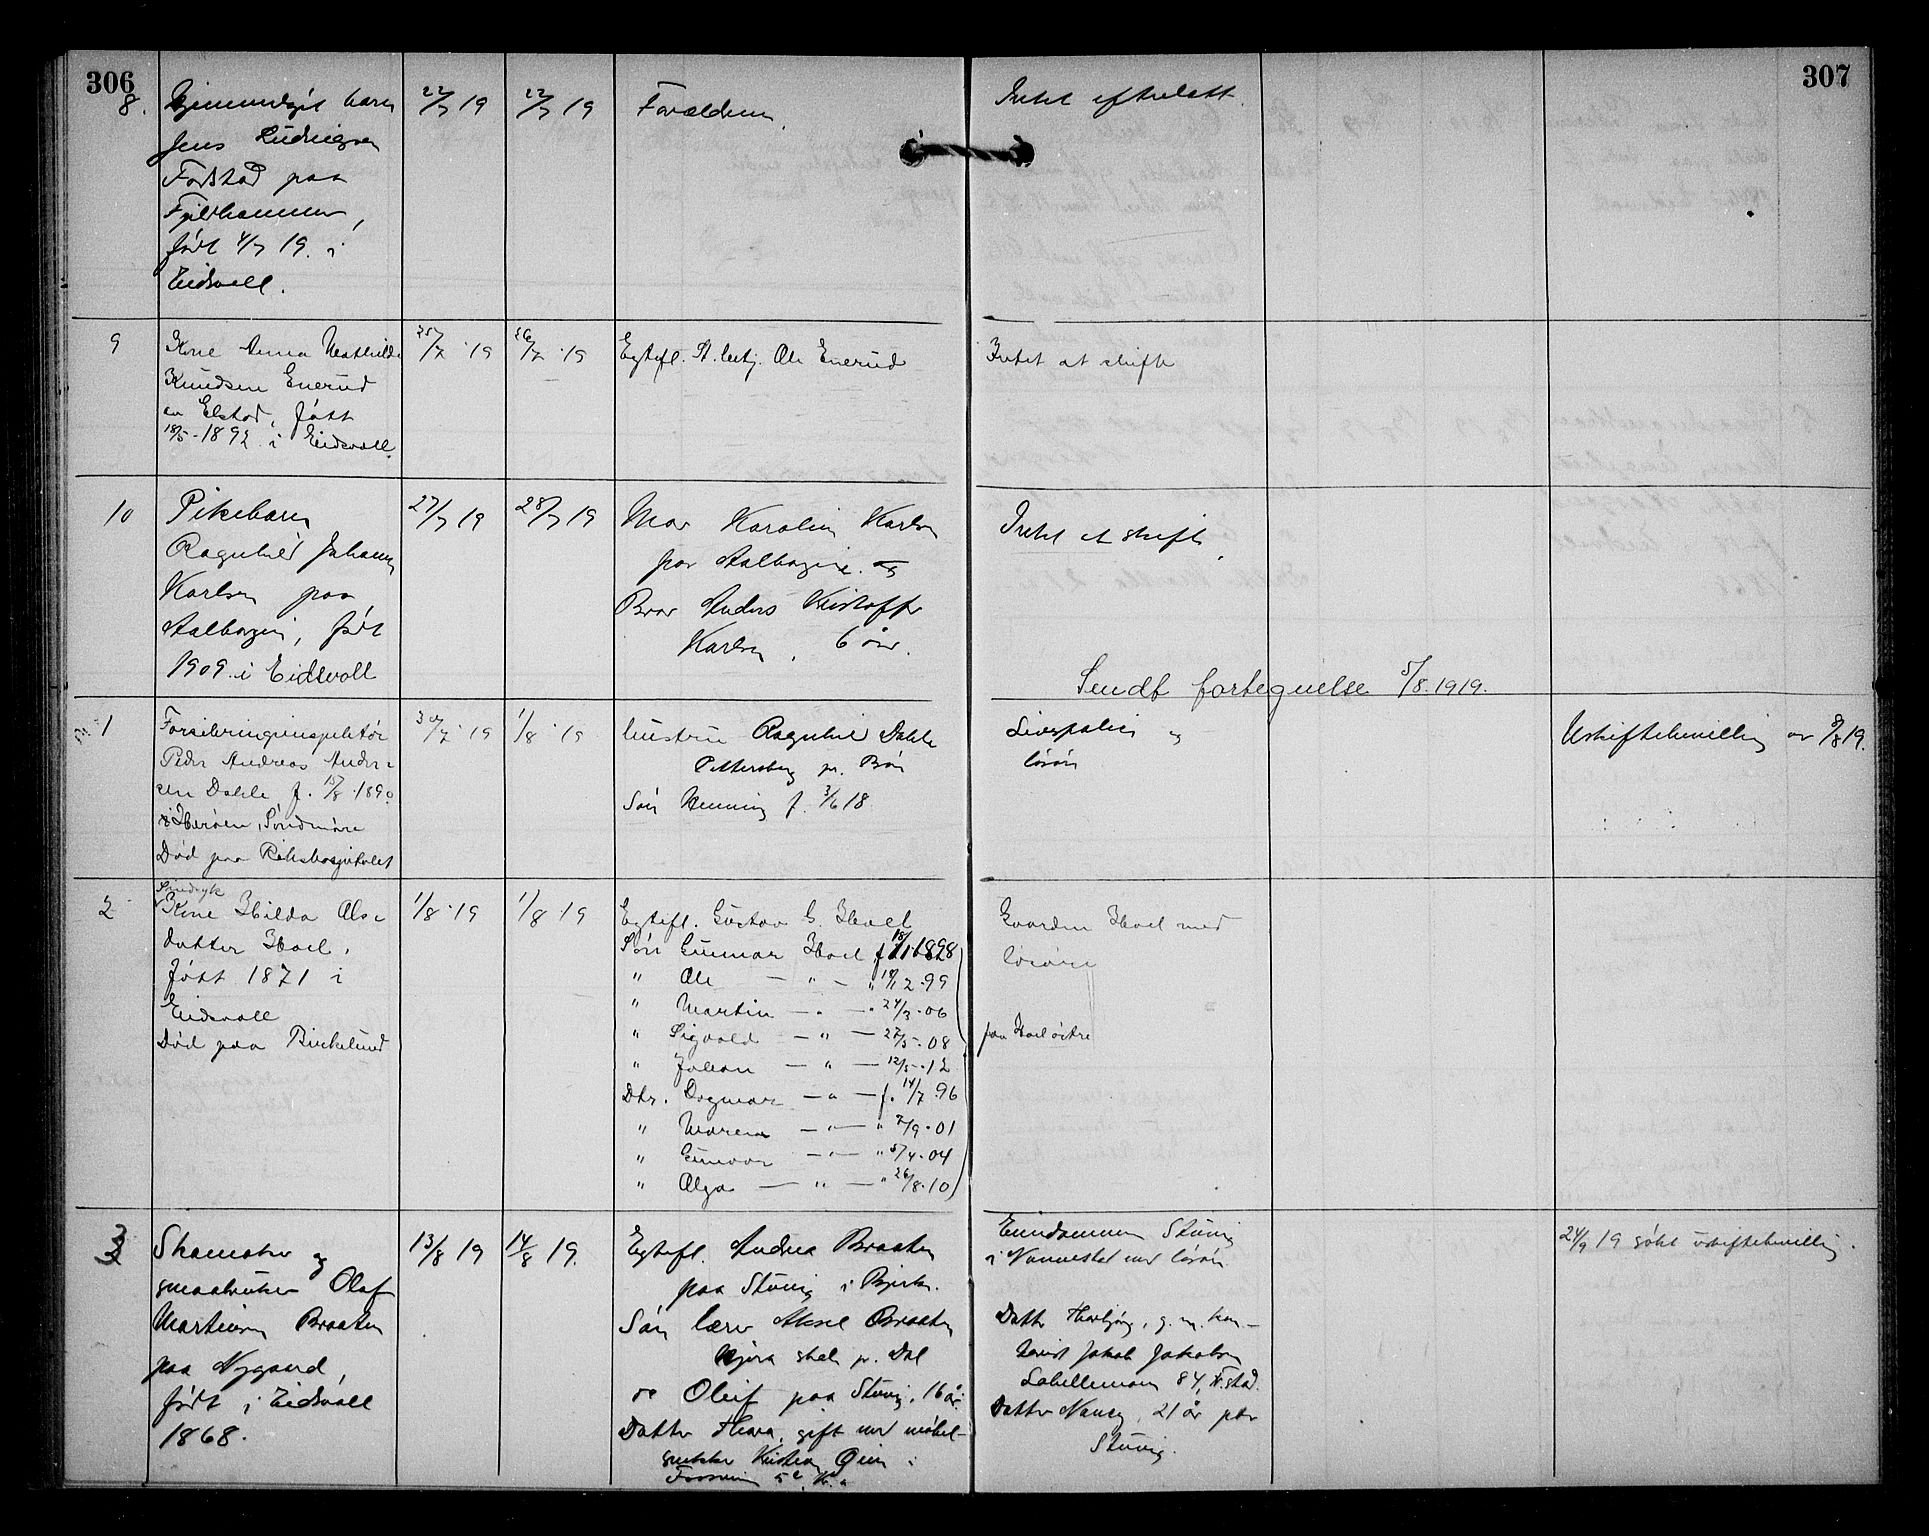 306
307
8.
barn
Jens Ludvigsen
Forstad paa
Fjeldhammer,
født 4/7 19. i
Eidsvoll.
22/7 19
22/7 19
Forældrene.
Intet efterlatt.
9
Kone Anna Mathilde
Knudsen Enerud
av Elstad, født
18/5-1892 i Eidsvoll.
25/7-19
26/7-19
Egtefl. St. betj. Ole Enerud
Intet at skifte
10
Pikebarn
Ragnhild Johanne
Karlsen paa
født
1909 i Eidsvoll
27/7 19
28/7 19
Mor Karolin Karlsen
paa og
Bror Anders Kristoffer
Karlsen, 6 år.
Intet at skifte.
Sendt fortegnelse 5/8.1919.
1
Forsikringsinspektør
Peder Andreas Ander-
sen Dahle f. 15/8-1890
i Herøen, Søndmøre
Død paa Rikshospitalet
30/7-19
1/8-19
hustru Ragnhild Dahle
Pettersberg pr. Bøn
Søn Henning f. 3/6 18
Livspolice og
løsøre
Uskiftebevilling av 9/8 19.
2
Sindsyk
Kone Hilda Ols-
datter Hoel,
født 1871 i
Eidsvoll
Død paa Birkelund
1/8-19
1/8 19
Egtefl. Gustav G. Hoel
Søn Gunnar Hoel f 18/1 1898
" Ole — " — " 2.99
" Martin — " — " 24/3.06
" Sigvald — " — 27/5.08
" Johan — " — 12/5.12
Dtr. Dagmar — " — f. 14/7.96
" Maren — " — " 7/9.01
" Gunvor — " — " 5/4.04
" Olga — " — " 26/8.10
Gaarden Hoel med
løsøre
paa Hoel østre
3
Skomaker og
smaabruker Olaf
Martinsen Braaten
paa Nygaard
født i Eidsvoll
1868.
13/8 19
14/8 19.
Egtefl. Andrea Braaten
paa Stuvig i Bjerke.
Søn lærer Aksel Braaten
skole pr. Dal
Oleif paa Stuvig, 16 år.
Datter Thora, gift med møbel-
snekker Kristian i
Eiendommen Stuvig
i Nannestad med løsøre.
Datter Herbjørg, g. m. kon-
torist Jakob Jakobsen
84, F.stad.
Datter Nancy, 21 år paa
Stuvig.
24/9 19 søkt uskiftebevilling.